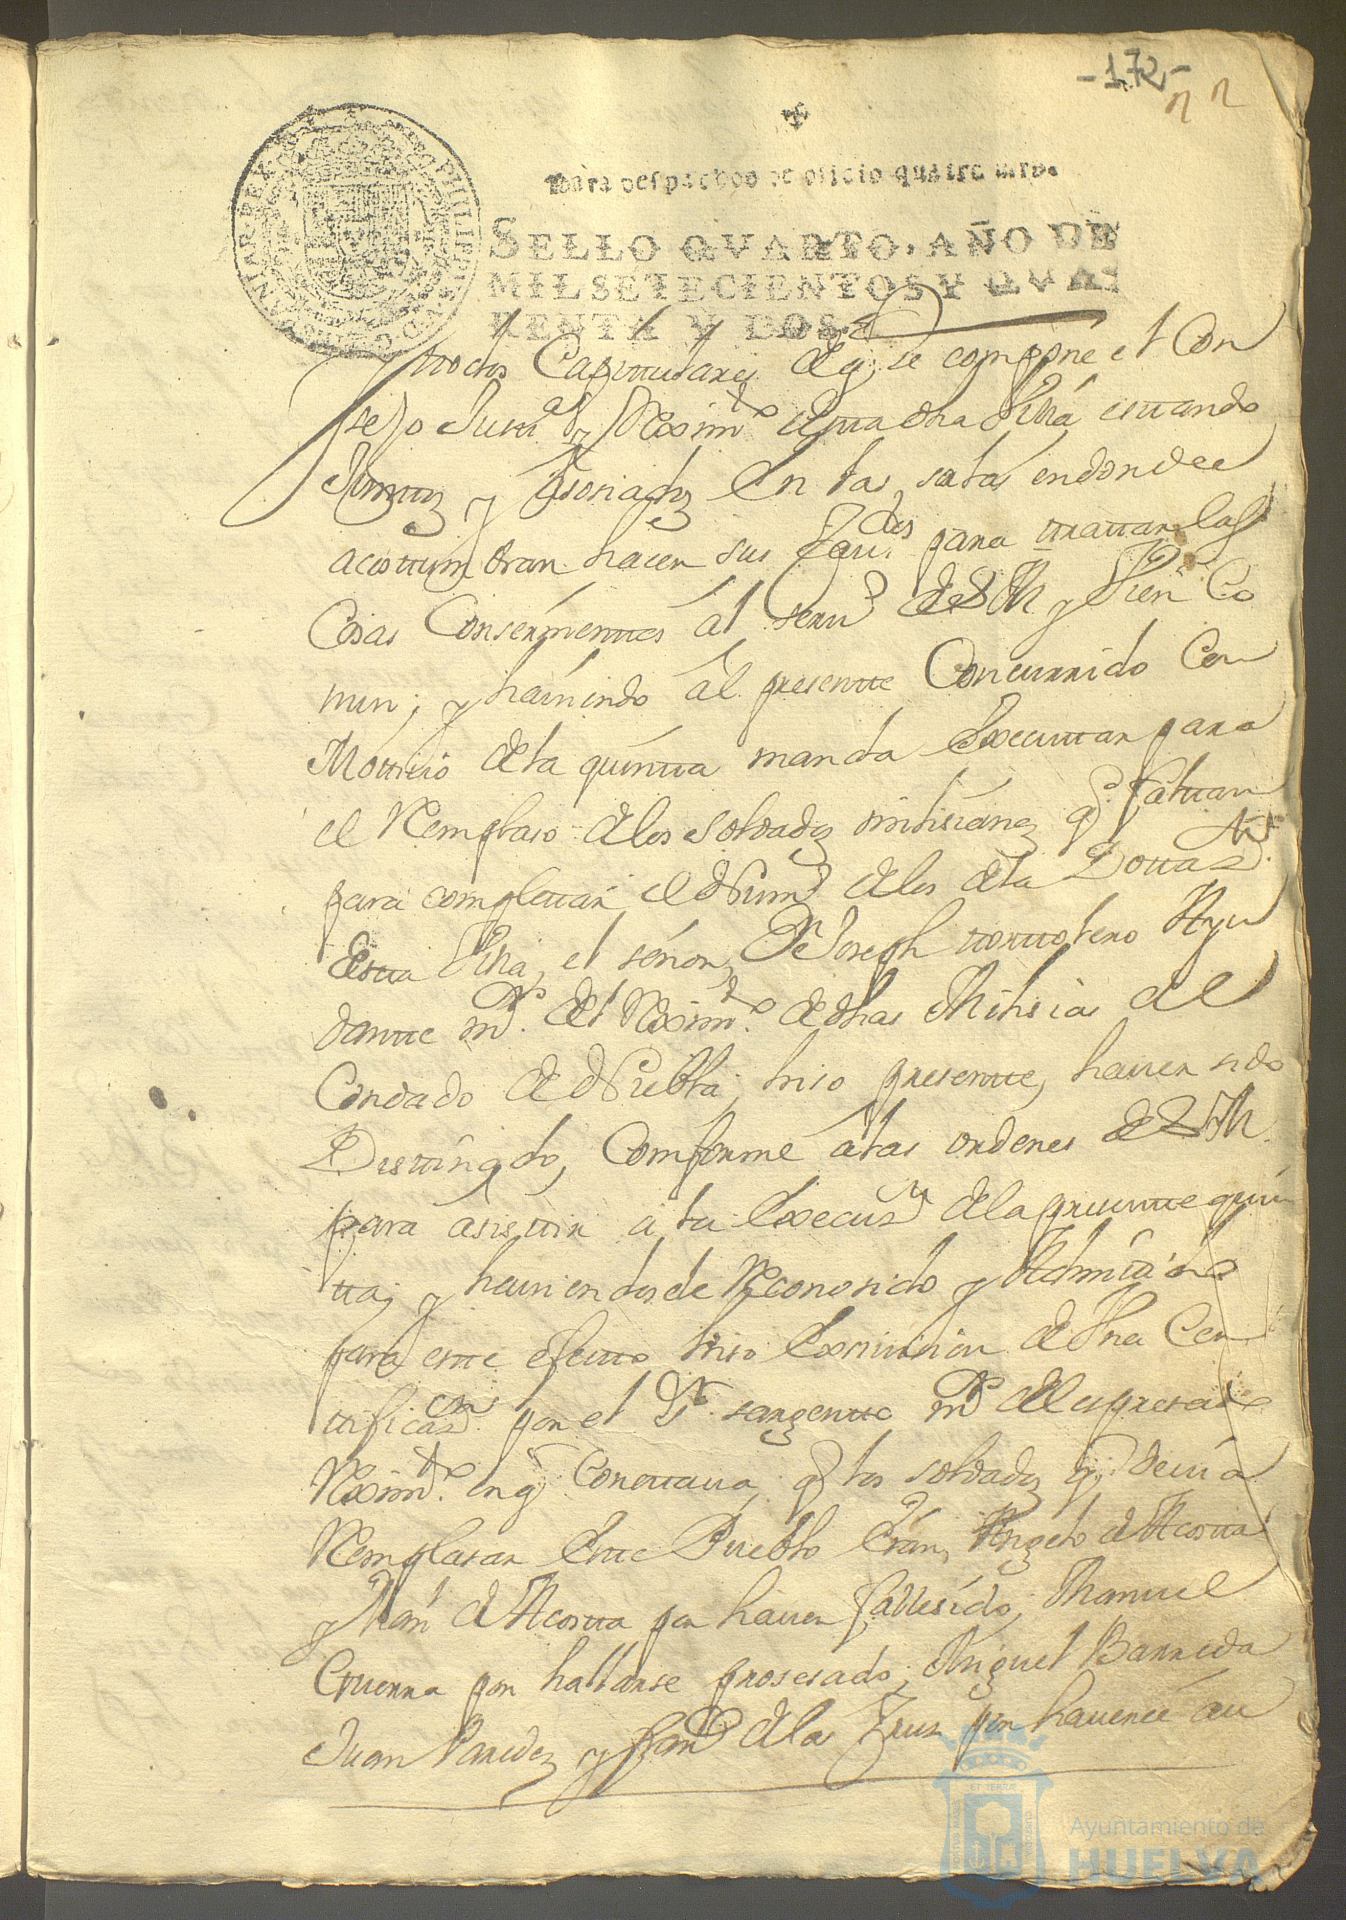 -172-
Para despachos de oficio quatro mrs.
SELLO QVARTO, AÑO DE
MIL SETECIENTOS Y QVA
RENTA Y DOS.
todos Capitulares de q. se compone el Con
sejo Justa. y Reximto. de esta dha Villa estando
Juntos y asosiados en las salas en donde
acostumbran hacer sus Cauildos para tratar las
Cosas Conserníentes al seru.o de S M y Vien Co
mun; y hauiendo al presente Concurrido Con
Motiuo de la quinta manda Executar para
el Remplaso de los soldados milisianos q. faltan
para completar el Num.o de los de la Dotaz.on
de esta Villa, el señor Dn. Joseph Ayu
dante m.or del Reximto. de dhas Milisias del
Condado de Niebla, hiso presente, hauer sido
Destinado, Comforme a las ordenes de S M.
para asistir a la Execus.on de la presente quin
ta, y hauiendosele Reconosido y Admitido
para este efecto hiso Exsiuision de Una Cer
tificaz.on por el Sr. sargento m.or del expresado
Reximto. en q. Constaua, q. los soldados q. deuia
Remplasar este Pueblo Eran, Angelo de Acosta
y de Acosta por hauer fallesido; Manuel
Guerra por hallarse prosesado; Miguel Barreda
Juan Paredes y de la Cruz por hauerse au
ET TERRÆ
Ayuntamiento de
HUELVA